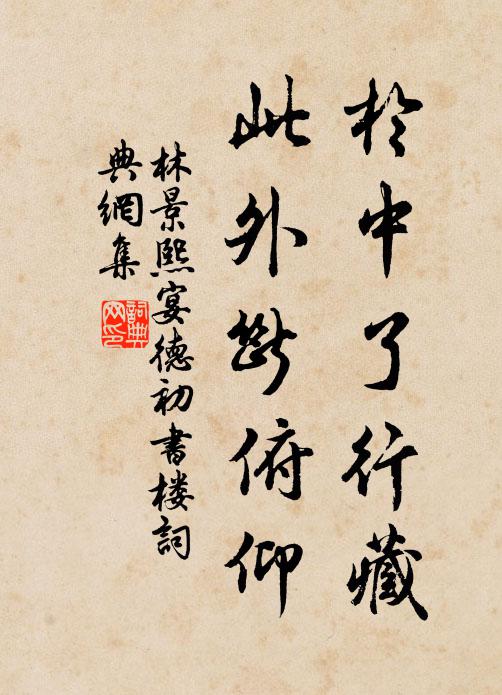 於中了行藏
此外斷俯仰
林景熙宴德初書楼詞
典網集
詞典
网印